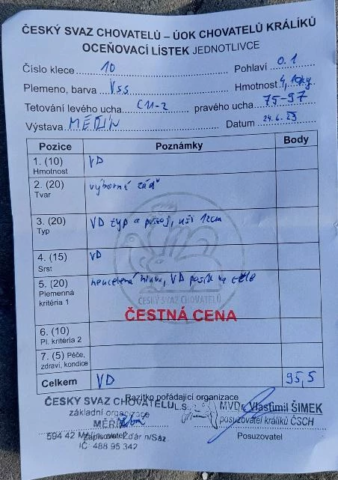 ČESKÝ SVAZ CHOVATELŮ – ÚOK CHOVATELŮ KRÁLÍKŮ
OCEŇOVACÍ LÍSTEK JEDNOTLIVCE
Číslo klece 10 Pohlaví 0.1
Plemeno, barva Vss Hmotnost
Tetování levého ucha C11-2 pravého ucha 75-57
Výstava MĚŘÍN Datum 24.6.23
Pozice Poznámky Body
1. (10) VD
Hmotnost
2. (20) výborná záď
Tvar
3. (20) VD typ a postoj, uši 12cm
Typ
4. (15) VD
Srst
5. (20) hlavy, VD
Plemenná
kritéria 1
ČESKÝ SVAZ CHOVATELŮ
ČESTNÁ CENA
6. (10)
Pl. kritéria 2
7. (5) Péče,
zdraví, kondice
Celkem VD 95,5
Razítko pořádající organizace
ČESKÝ SVAZ CHOVATELŮ MVDr. Vlastimil ŠIMEK
základní organizace posuzovatel králíků ČSCH
MĚŘÍN Posuzovatel
594 42
IČ: 488 95 342